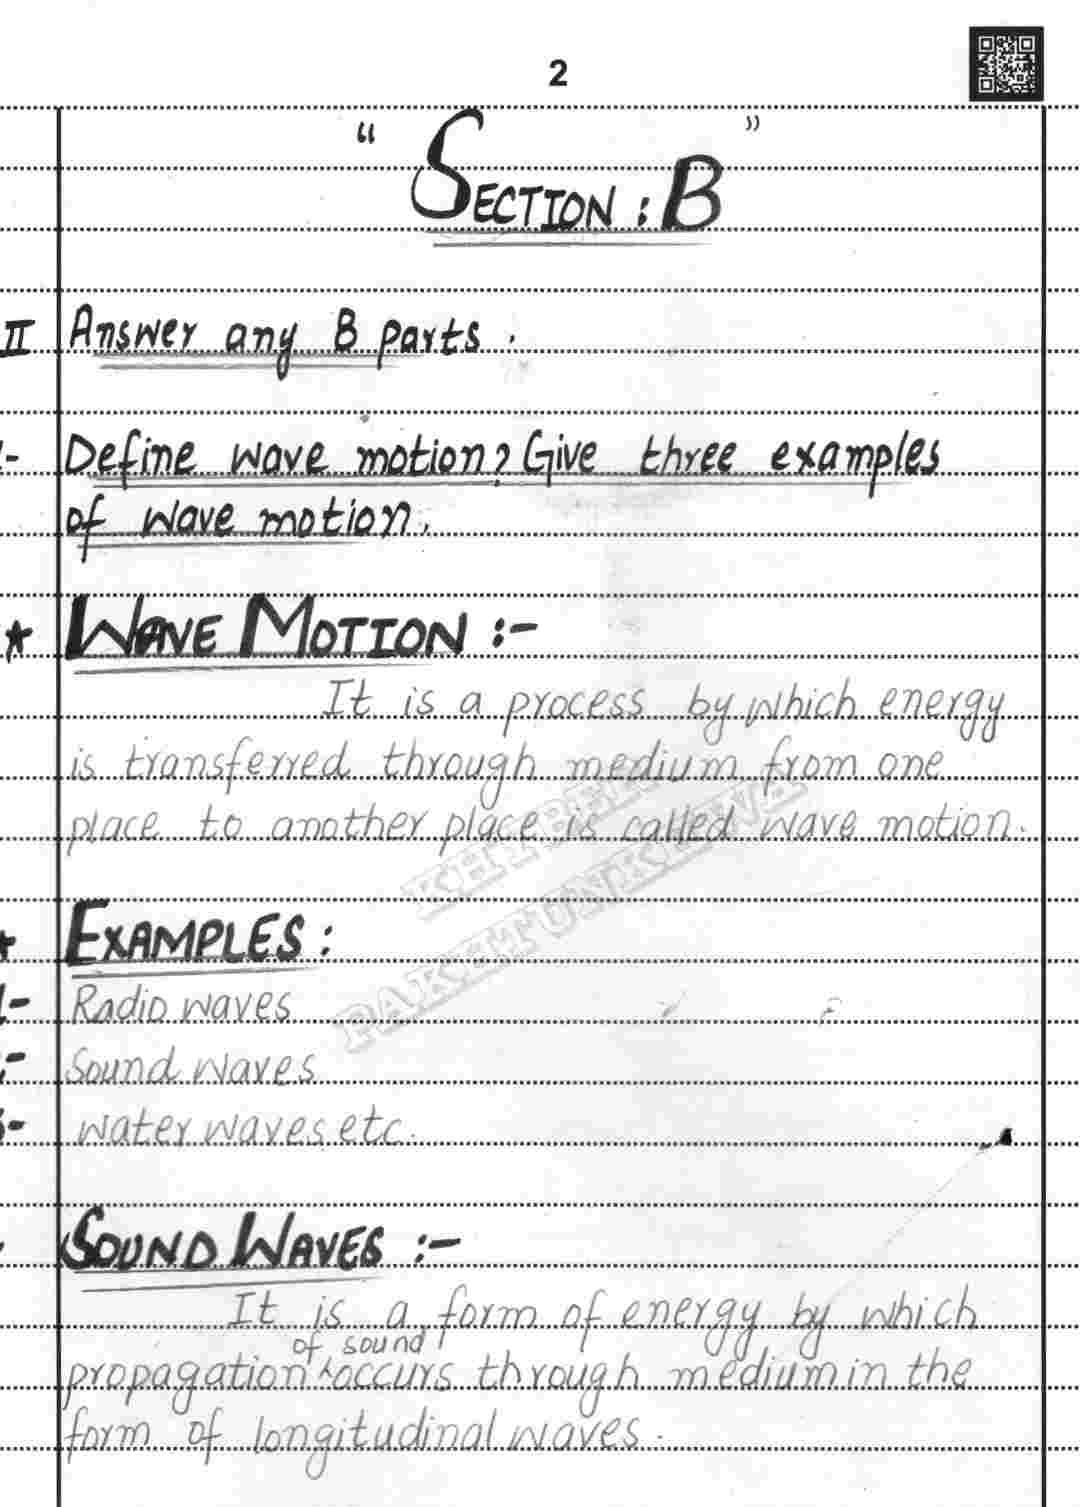 2
" SECTION : B "
II Answer any B parts .
- Define wave motion? Give three examples
of wave motion.
★ WAVE MOTION :-
It is a process by which energy
is transferred through medium from one
place to another place is called wave motion.
KHYBER
PAKHTUNKHWA
★ EXAMPLES :
1- Radio waves
:- Sound waves
3- water waves etc.
SOUND WAVES :-
It is a form of energy by which
of sound
propagation ^ occurs through medium in the
form of longitudinal waves .